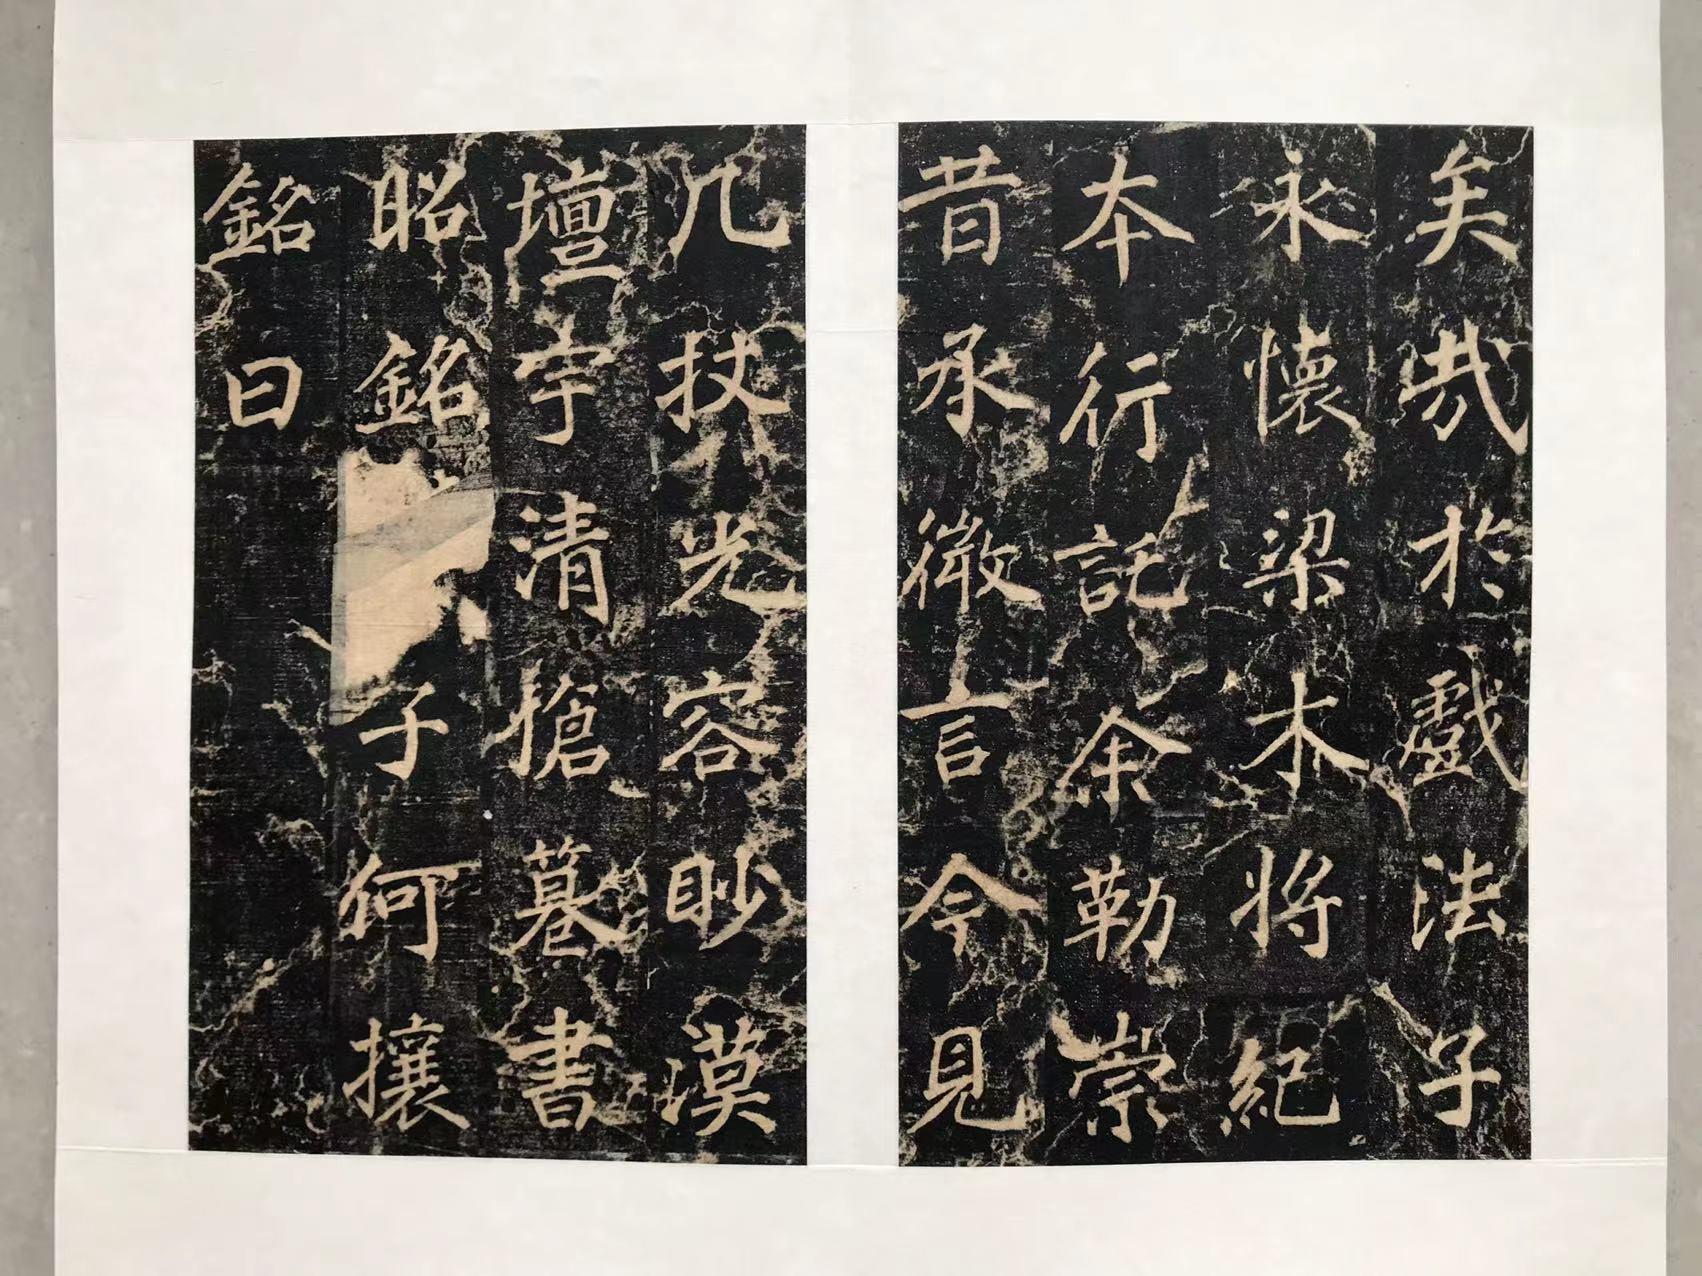 矣哉於戲法子
永懷梁木將紀
本行託余勒崇
昔承微言今見
几杖光容眇漠
壇宇清愴書
昭銘子何攘
銘曰